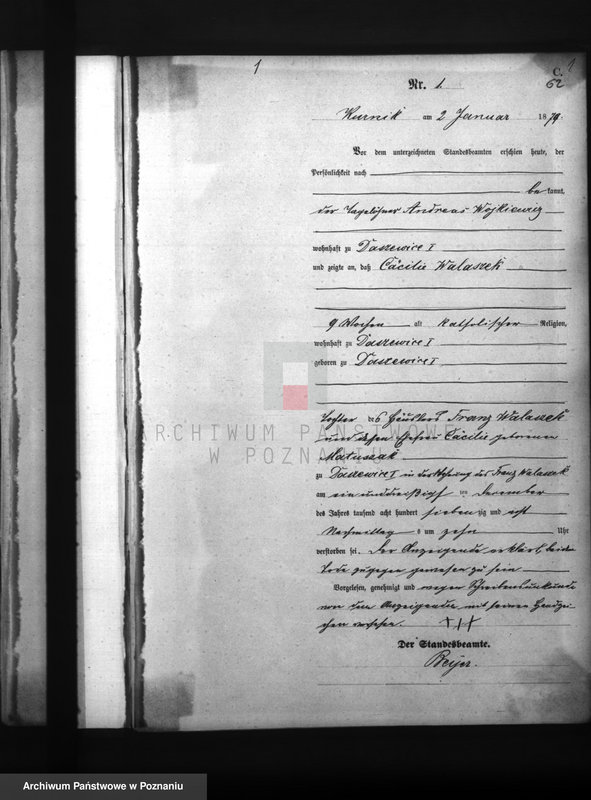 1 1
C.
Nr. 1. 62
Kurnik am 2 Januar 1879.
Vor dem unterzeichneten Standesbeamten erschien heute, der
Persönlichkeit nach
be kannt,
der Tagelöhner Andreas Wojkiewicz
wohnhaft zu Daszewice I
und zeigte an, daß Cäcilie Walaszek
9 Wochen alt katholischer Religion,
wohnhaft zu Daszewice I
geboren zu Daszewice I
Tochter des Häuslers Franz Walaszek
und dessen Ehefrau Cäcilie geborenen
Matuszak
zu Daszewice I in der Wohnung des Franz Walaszek
am ein und dreißigsten December
des Jahres tausend acht hundert sieben zig und acht
Nachmittags um zehn Uhr
verstorben sei. Der Anzeigende erklärt, beim
Tode zugegen gewesen zu sein
Vorgelesen, genehmigt und wegen Schreibensunkunde
von dem Anzeigenden mit seinen Handzei-
chen versehen. +++
Der Standesbeamte.
Beyer.
ARCHIWUM PAŃSTWOWE
W POZNANIU
Archiwum Państwowe w Poznaniu